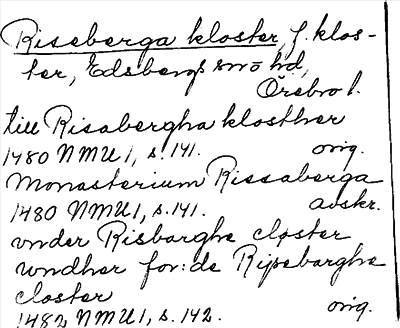 Riseberga kloster, f. klos-
ter, Edsbergs sn o hd,
Örebro l.
till Risabergha klosther
1480 NMU 1, s. 141. orig.
Monasterium Rissaberga
1480 NMU 1, s. 141. avskr.
vnder Risbarghe closter
wndher for:de Rijsebarghe
closter
1482 NMU 1, s. 142. orig.